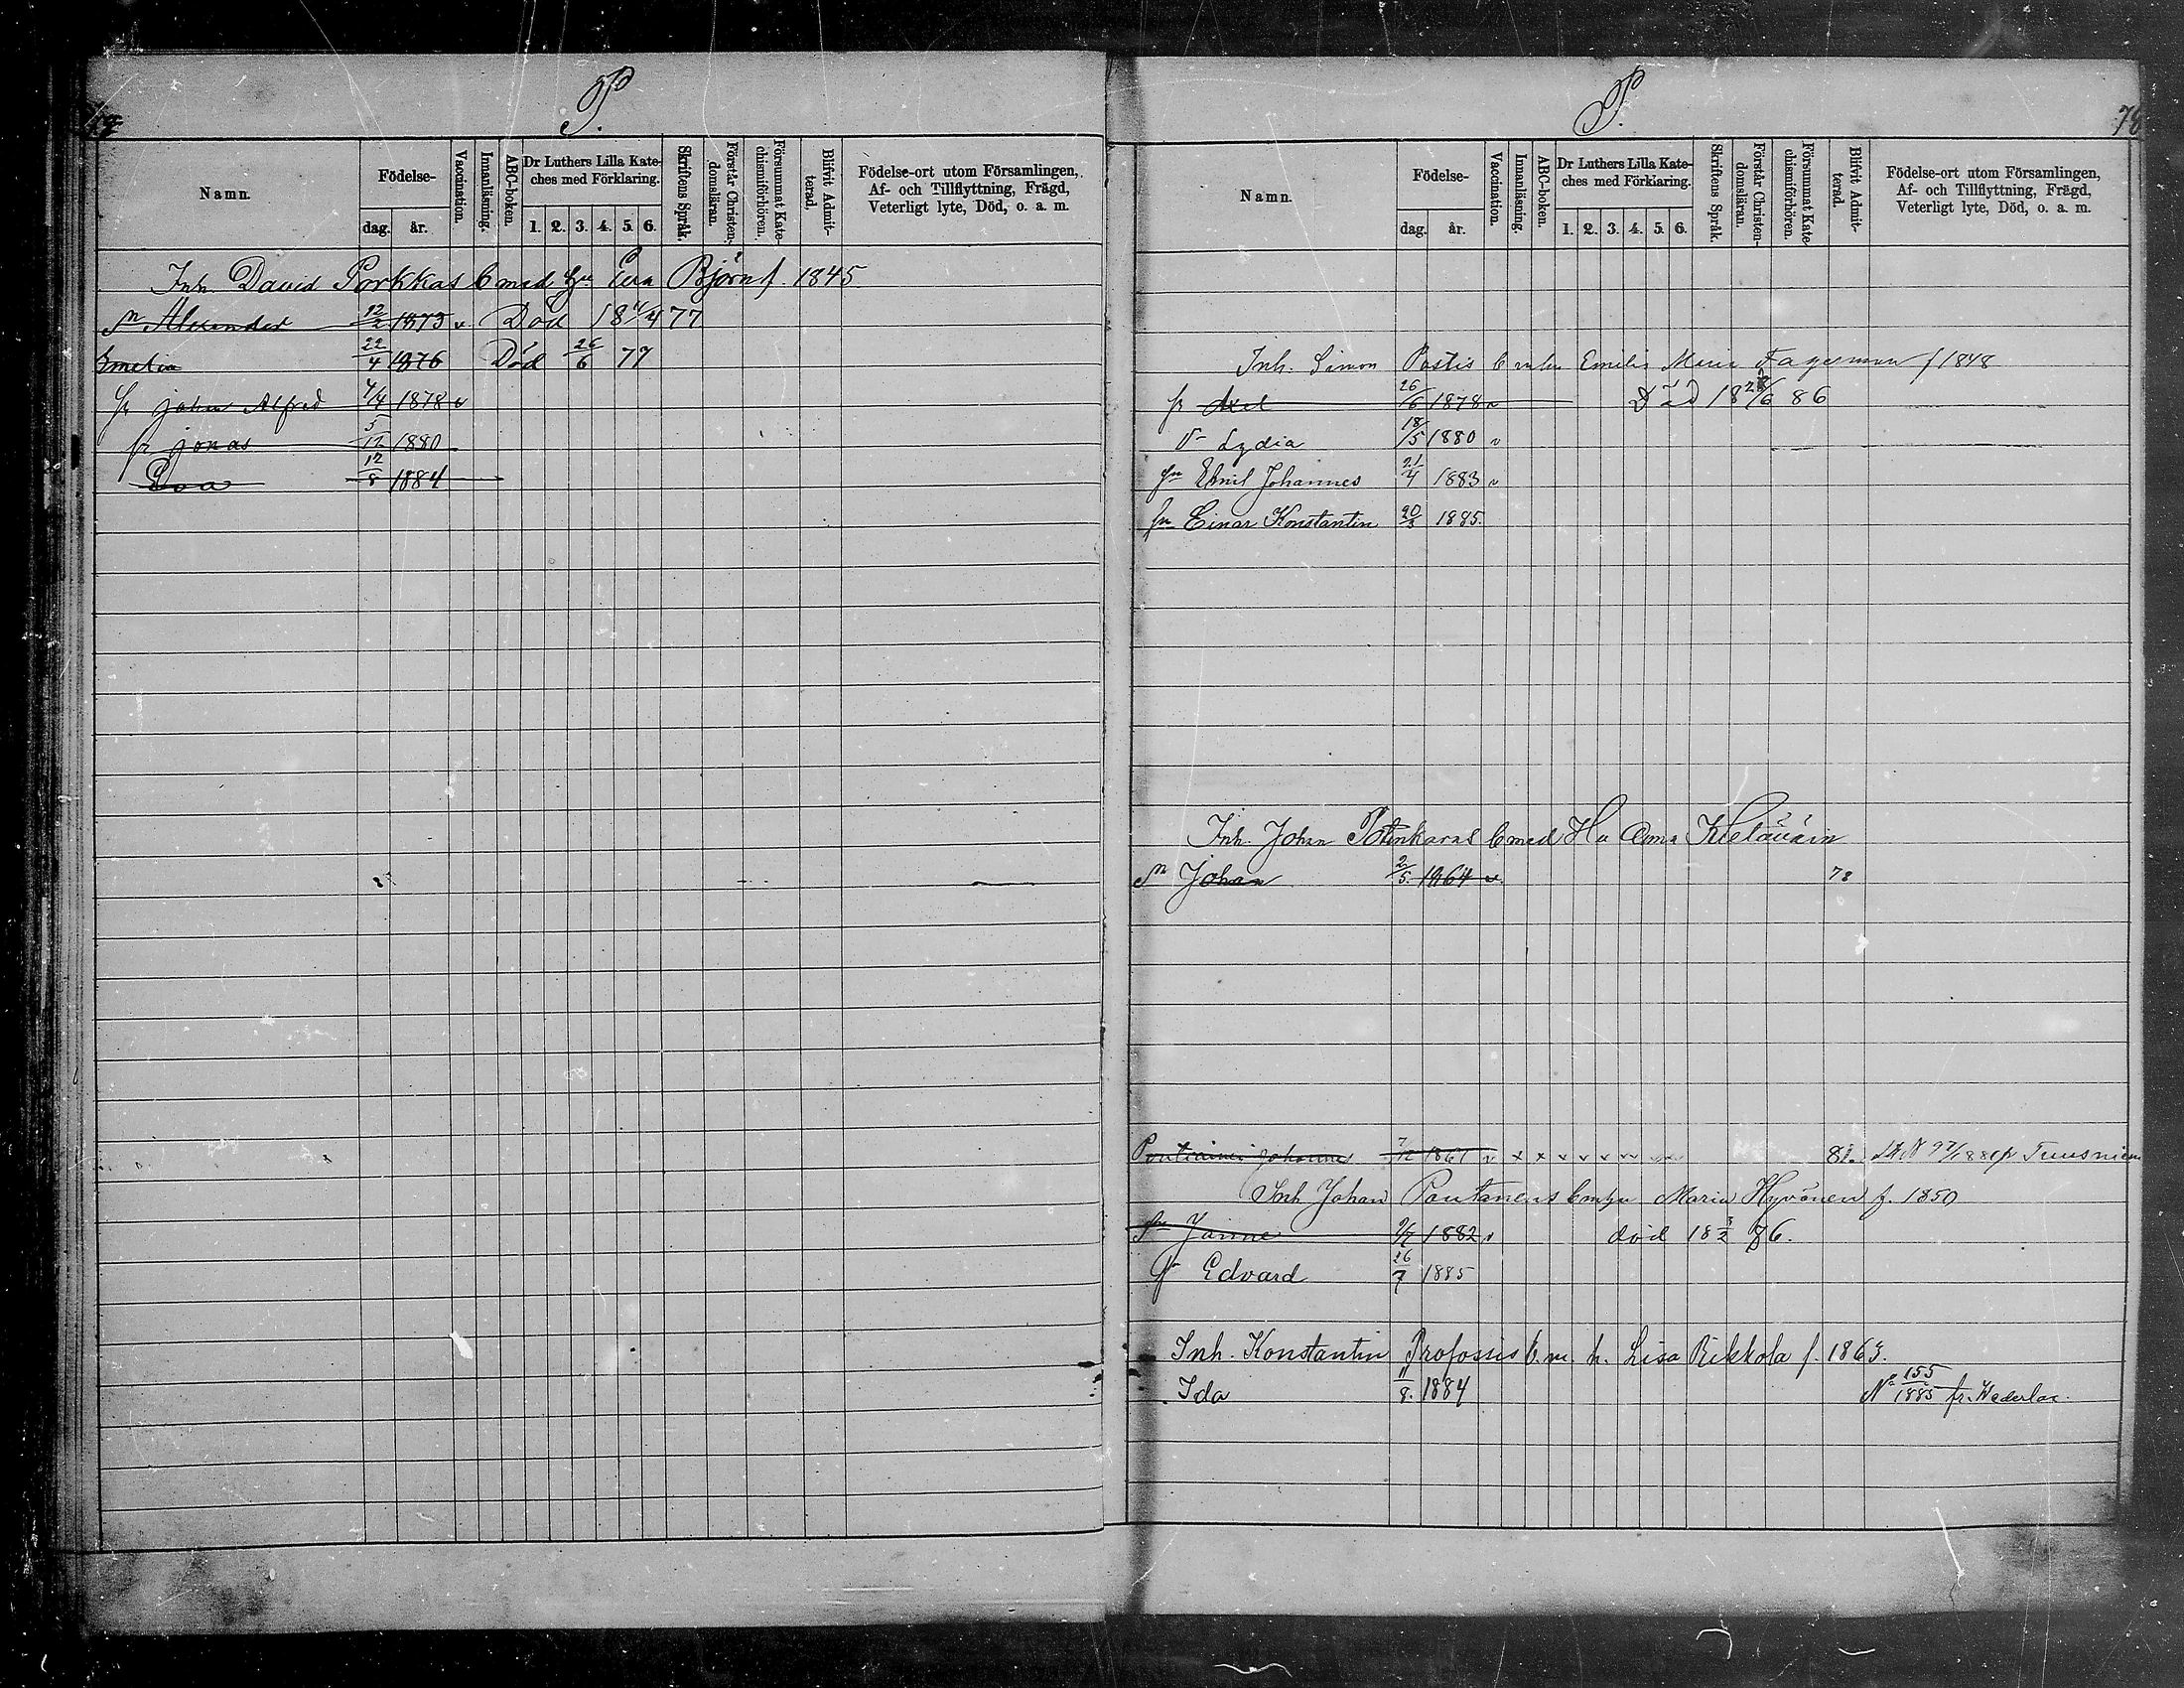 P.
Namn.
Födelse-
dag. år.
Vaccination.
Innanläsning.
ABC-boken.
Dr Luthers Lilla Kate-
ches med Förklaring.
1. 2. 3. 4. 5. 6.
Skriftens Språk.
Förstår Christen-
domsläran.
Försummat Kate-
chismiförhören.
Blifvit Admit-
terad,
Födelse-ort utom Församlingen,
Af- och Tillflyttning, Frägd,
Veterligt lyte, Död, o. a. m.
Inh. David Porkkas b med hu Eva Björn f. 1845
Sn Alexander 12/2 1873 v Död 18 4/4 77
Emelia 22/4 1876 Död 26/6 77
Johan Alfred 4/4 1878 v
Jonas 5/12 1880
Eva 12/8 1884
P.
78
Namn.
Födelse-
dag. år.
Vaccination.
Innanläsning.
ABC-boken.
Dr Luthers Lilla Kate-
ches med Förklaring.
1. 2. 3. 4. 5. 6.
Skriftens Språk.
Förstår Christen-
domsläran.
Försummat Kate-
chismiförhören.
Blifvit Admit-
terad.
Födelse-ort utom Församlingen,
Af- och Tillflyttning, Frägd,
Veterligt lyte, Död, o. a. m.
Inh. Simon Postis b Emilia Maria Fagerman f 1848
Axel 26/6 1878 v Död 18 /6 86
Lydia 18/5 1880 v
Emil Johannes 21/4 1883 v
Einar Konstantin 20/3 1885.
Inh. Johan b med Hu Anna
Sn Johan 2/5. 1864 v. 78
Johannes 7/12 1861 v x x v v v v 81. 97/188 Tuusniemi
Inh Johan Poutanens b Maria Hyvönen f. 1850
Janne 9/7 1882 v död 18 3/2 86.
Edvard 26/7 1885
Inh. Konstantin Profossis b. m. h. Lisa Rikkola f. 1863.
Ida 11/8. 1884 No 155/1885 fr. Wederlax.